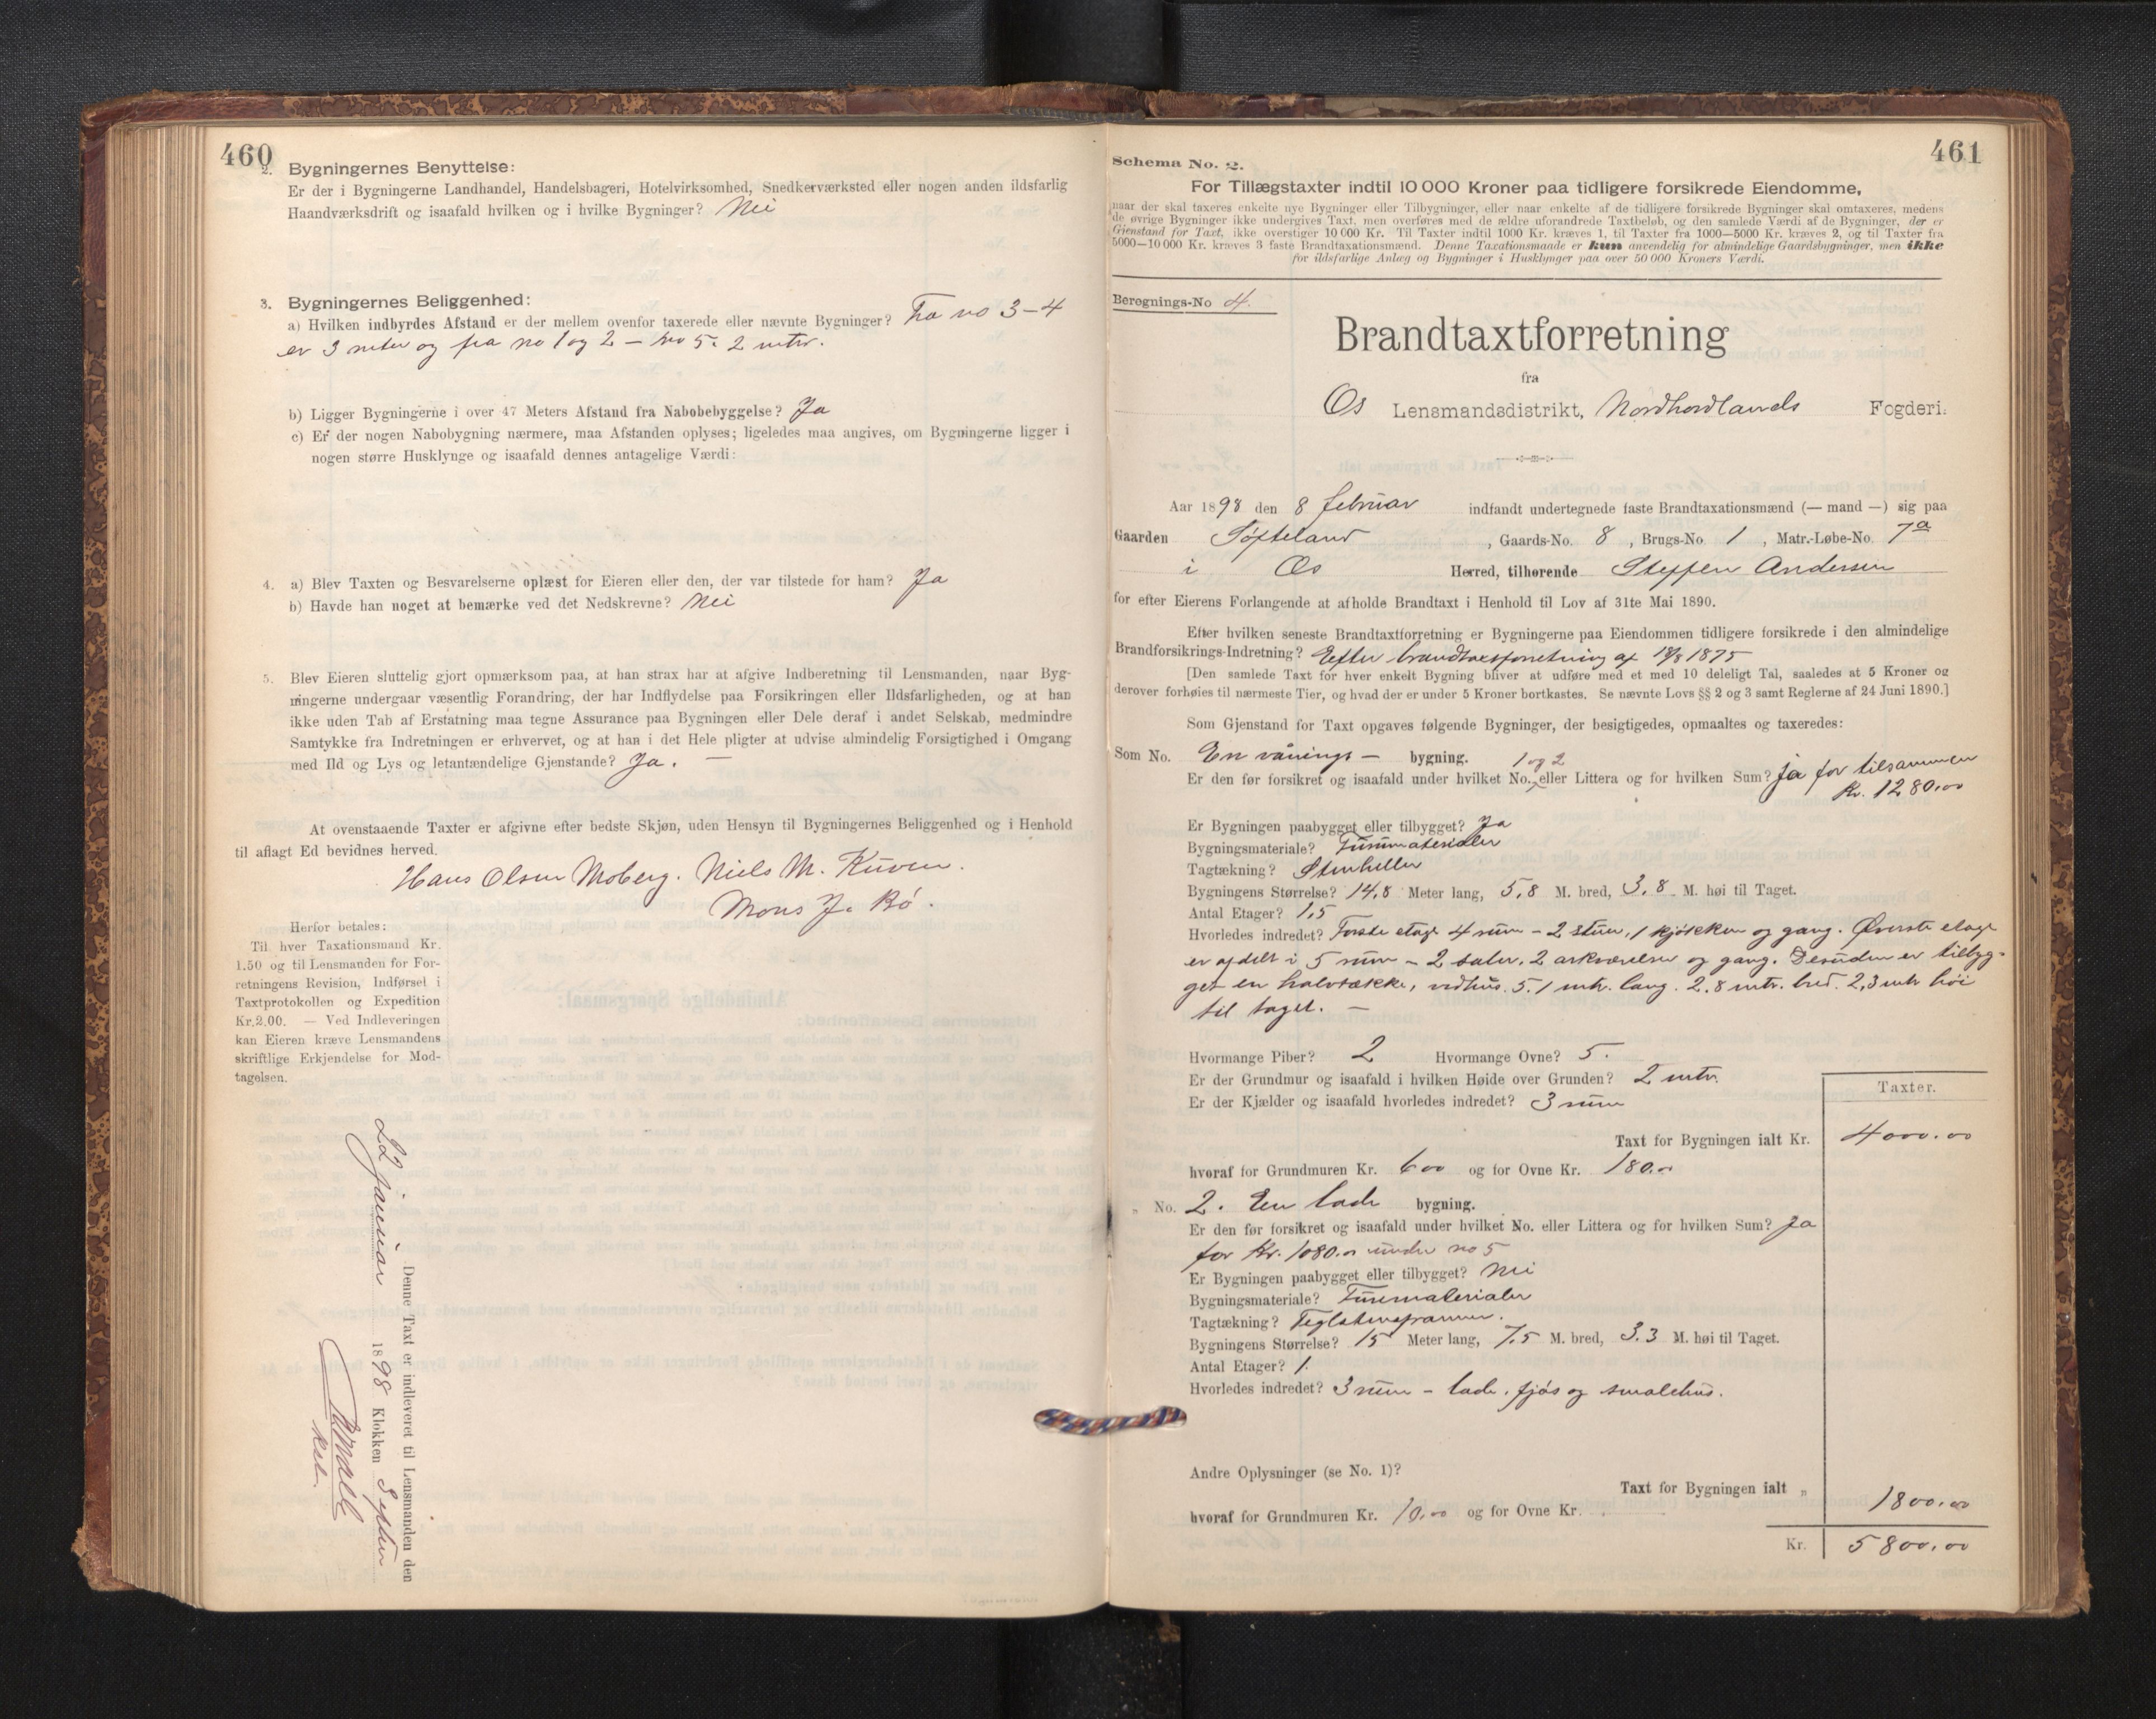 460
2. Bygningernes Benyttelse:
Er der i Bygningerne Landhandel, Handelsbageri, Hotelvirksomhed, Snedkerværksted eller nogen anden ildsfarlig
Haandværksdrift og isaafald hvilken og i hvilke Bygninger? Nei
3. Bygningernes Beliggenhed:
a) Hvilken indbyrdes Afstand er der mellem ovenfor taxerede eller nævnte Bygninger? Fra no 3-4
er 3 meter og fra no 1 og 2 – no 5. 2 mtr.
b) Ligger Bygningerne i over 47 Meters Afstand fra Nabobebyggelse? Ja
c) Er der nogen Nabobygning nærmere, maa Afstanden oplyses; ligeledes maa angives, om Bygningerne ligger i
nogen større Husklynge og isaafald dennes antagelige Værdi:
4. a) Blev Taxten og Besvarelserne oplæst for Eieren eller den, der var tilstede for ham? Ja
b) Havde han noget at bemærke ved det Nedskrevne? Nei
5. Blev Eieren sluttelig gjort opmærksom paa, at han strax har at afgive Indberetning til Lensmanden, naar Byg-
ningerne undergaar væsentlig Forandring, der har Indflydelse paa Forsikringen eller Ildsfarligheden, og at han
ikke uden Tab af Erstatning maa tegne Assurance paa Bygningen eller Dele deraf i andet Selskab, medmindre
Samtykke fra Indretningen er erhvervet, og at han i det Hele pligter at udvise almindelig Forsigtighed i Omgang
med Ild og Lys og letantændelige Gjenstande? Ja. –
At ovenstaaende Taxter er afgivne efter bedste Skjøn, uden Hensyn til Bygningernes Beliggenhed og i Henhold
til aflagt Ed bevidnes herved.
Hans Olsen Moberg. Niels M. Kuven.
Mons J. Bö.
Herfor betales:
Til hver Taxationsmand Kr.
1.50 og til Lensmanden for For-
retningens Revision, Indførsel i
Taxtprotokollen og Expedition
Kr.2.00. — Ved Indleveringen
kan Eieren kræve Lensmandens
skriftlige Erkjendelse for Mod-
tagelsen.
Denne Taxt er indleveret til Lensmanden den
22 januar 1898 Klokken
461
Schema No. 2.
For Tillægstaxter indtil 10 000 Kroner paa tidligere forsikrede Eiendomme,
naar der skal taxeres enkelte nye Bygninger eller Tilbygninger, eller naar enkelte af de tidligere forsikrede Bygninger skal omtaxeres, medens
de øvrige Bygninger ikke undergives Taxt, men overføres med de ældre uforandrede Taxtbeløb, og den samlede Værdi af de Bygninger, der er
Gjenstand for Taxt, ikke overstiger 10 000 Kr. Til Taxter indtil 1000 Kr. kræves 1, til Taxter fra 1000—5000 Kr. kræves 2, og til Taxter fra
5000—10 000 Kr. kræves 3 faste Brandtaxationsmænd. Denne Taxationsmaade er kun anvendelig for almindelige Gaardsbygninger, men ikke
for ildsfarlige Anlæg og Bygninger i Husklynger paa over 50 000 Kroners Værdi.
Beregnings-No 4.
Brandtaxtforretning
fra
Os Lensmandsdistrikt, Nordhordlands Fogderi.
Aar 1898 den 8 februar indfandt undertegnede faste Brandtaxationsmænd (— mand —) sig paa
Gaarden Søfteland, Gaards-No. 8, Brugs-No. 1, Matr.-Løbe-No. 7a
i Os Herred, tilhørende Steffen Andersen
for efter Eierens Forlangende at afholde Brandtaxt i Henhold til Lov af 31te Mai 1890.
Efter hvilken seneste Brandtaxtforretning er Bygningerne paa Eiendommen tidligere forsikrede i den almindelige
Brandforsikrings-Indretning? Efter brandtaxtforretning af 18/8 1875
[Den samlede Taxt for hver enkelt Bygning bliver at udføre med et med 10 deleligt Tal, saaledes at 5 Kroner og
derover forhøies til nærmeste Tier, og hvad der er under 5 Kroner bortkastes. Se nævnte Lovs §§ 2 og 3 samt Reglerne af 24 Juni 1890.]
Som Gjenstand for Taxt opgaves følgende Bygninger, der besigtigedes, opmaaltes og taxeredes:
Som No. En vånings – bygning. 1 og 2
Er den før forsikret og isaafald under hvilket No. eller Littera og for hvilken Sum? Ja for tilsammen
Kr. 1280.00
Er Bygningen paabygget eller tilbygget? Ja
Bygningsmateriale? Furumaterialer
Tagtækning? Stenheller
Bygningens Størrelse? 14,8 Meter lang, 5,8 M. bred, 3,8 M. høi til Taget.
Antal Etager? 1,5
Hvorledes indredet? Første etage 4 rum – 2 stuer, 1 kjøkken og gang. Øverste etage
er afdelt i 5 rum – 2 saler, 2 arkværelser og gang. Desuden er tilbyg-
get en halvtække, vedhus. 5.1 mtr. lang. 2,8 mtr. bred. 2,3 mtr høi
til taget. –
Hvormange Piber? 2 Hvormange Ovne? 5.
Er der Grundmur og isaafald i hvilken Høide over Grunden? 2 mtr.
Er der Kjælder og isaafald hvorledes indredet? 3 rum
Taxter.
Taxt for Bygningen ialt Kr. 4000.00
hvoraf for Grundmuren Kr. 600 og for Ovne Kr. 180.00
„ No. 2. En lade bygning.
Er den før forsikret og isaafald under hvilket No. eller Littera og for hvilken Sum? Ja
for Kr. 1080.00 under no 5
Er Bygningen paabygget eller tilbygget? Nei
Bygningsmateriale? Furumaterialer
Tagtækning? Teglstenspanner.
Bygningens Størrelse? 15 Meter lang, 7,5 M. bred, 3.3 M. høi til Taget.
Antal Etager? 1.
Hvorledes indredet? 3 rum – lade, fjøs og smalehus.
Andre Oplysninger (se No. 1)?
Taxt for Bygningen ialt „ 1800.00
hvoraf for Grundmuren Kr. 10.00 og for Ovne Kr.
Kr. 5800.00